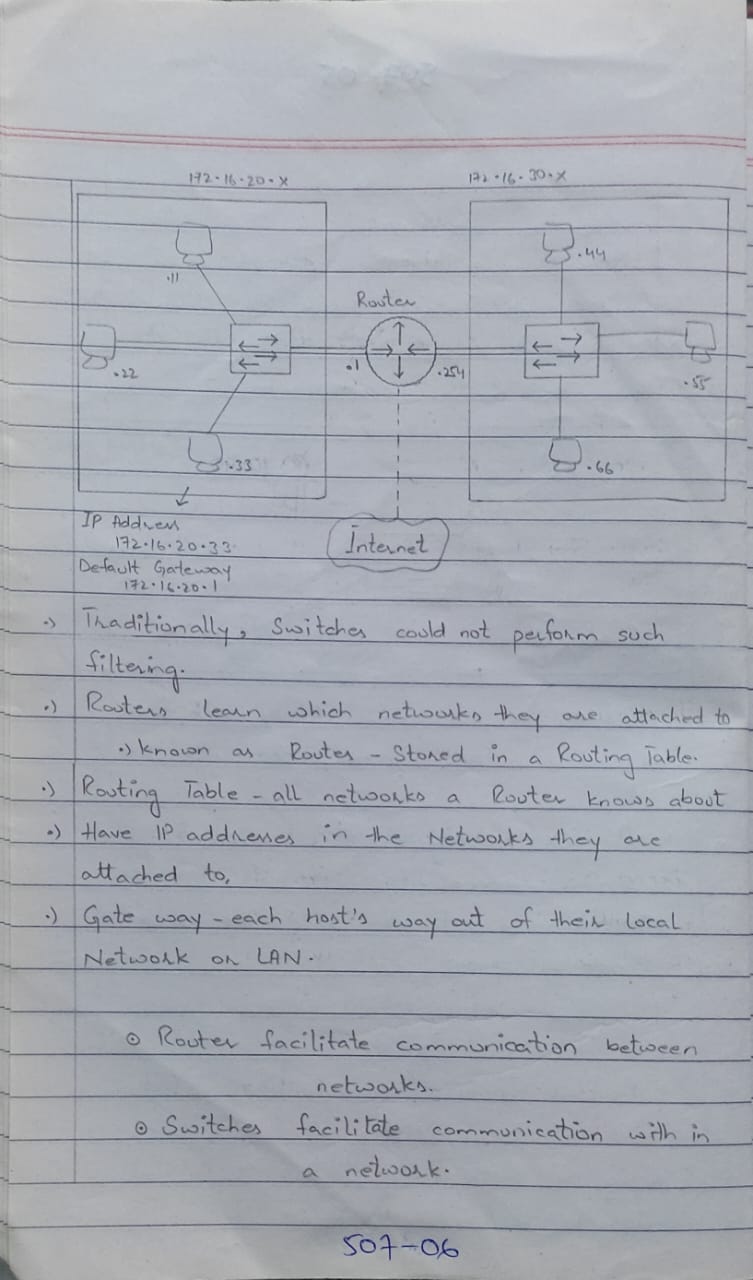 172.16.20.X
172.16.30.X
.11
.44
Router
.22
.1
.254
.55
.33
.66
IP Address
172.16.20.33
Internet
Default Gateway
172.16.20.1
.) Traditionally, Switches could not perform such
filtering.
.) Routers learn which networks they are attached to
.) known as Routes - Stored in a Routing Table.
.) Routing Table - all networks a Router knows about
.) Have IP addresses in the Networks they are
attached to,
.) Gate way - each host's way out of their local
Network or LAN.
⊙ Router facilitate communication between
networks.
⊙ Switches facilitate communication with in
a network.
507-06